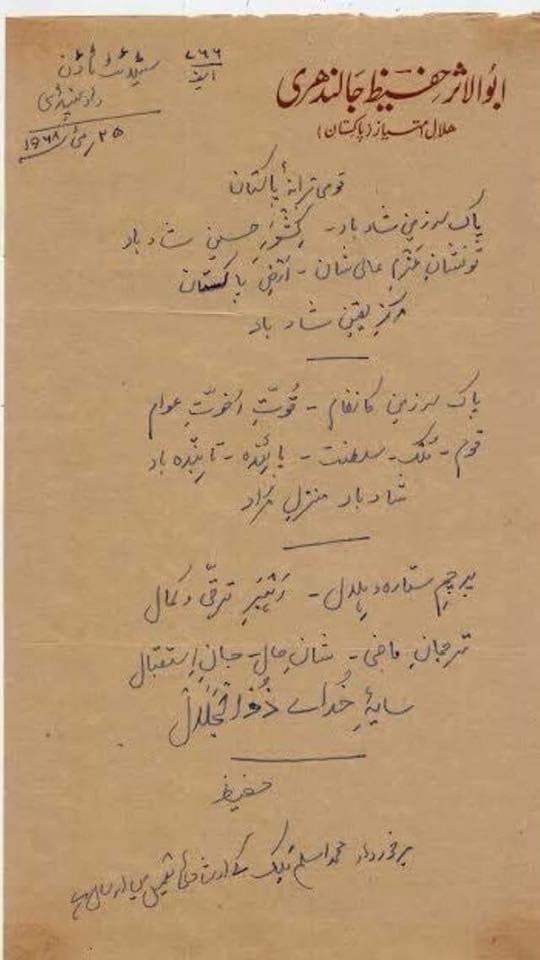 ابوالاثر حفیظ جالندھری
ھلال امتیاز (پاکستان)
۷۸۶
سٹیلائٹ ٹاؤن
راولپنڈی
۲۵ مئی ۱۹۶۸
قومی ترانۂ پاکستان
پاک سرزمین شاد باد - کِشْوَرِ حسین شاد باد
تُو نشانِ عَزْمِ عالی شان - اَرضِ پاکستان
مرکزِ یقین شاد باد
پاک سرزمین کا نظام - قُوّتِ اخوّتِ عوام
قوم - مُلک - سلطنت - پائندہ - تابِندہ باد
شاد باد منزلِ مُراد
پرچمِ ستارہ و ہِلال - رَہْبَرِ ترقّی و کمال
ترجمانِ ماضی - شانِ حال - جانِ اِستقبال
سایۂِ خُدائے ذُوالجَلال
حفیظ
برخوردار محمد اسلم ملک کے ارشاد کی تعمیل میں ارسال ہے